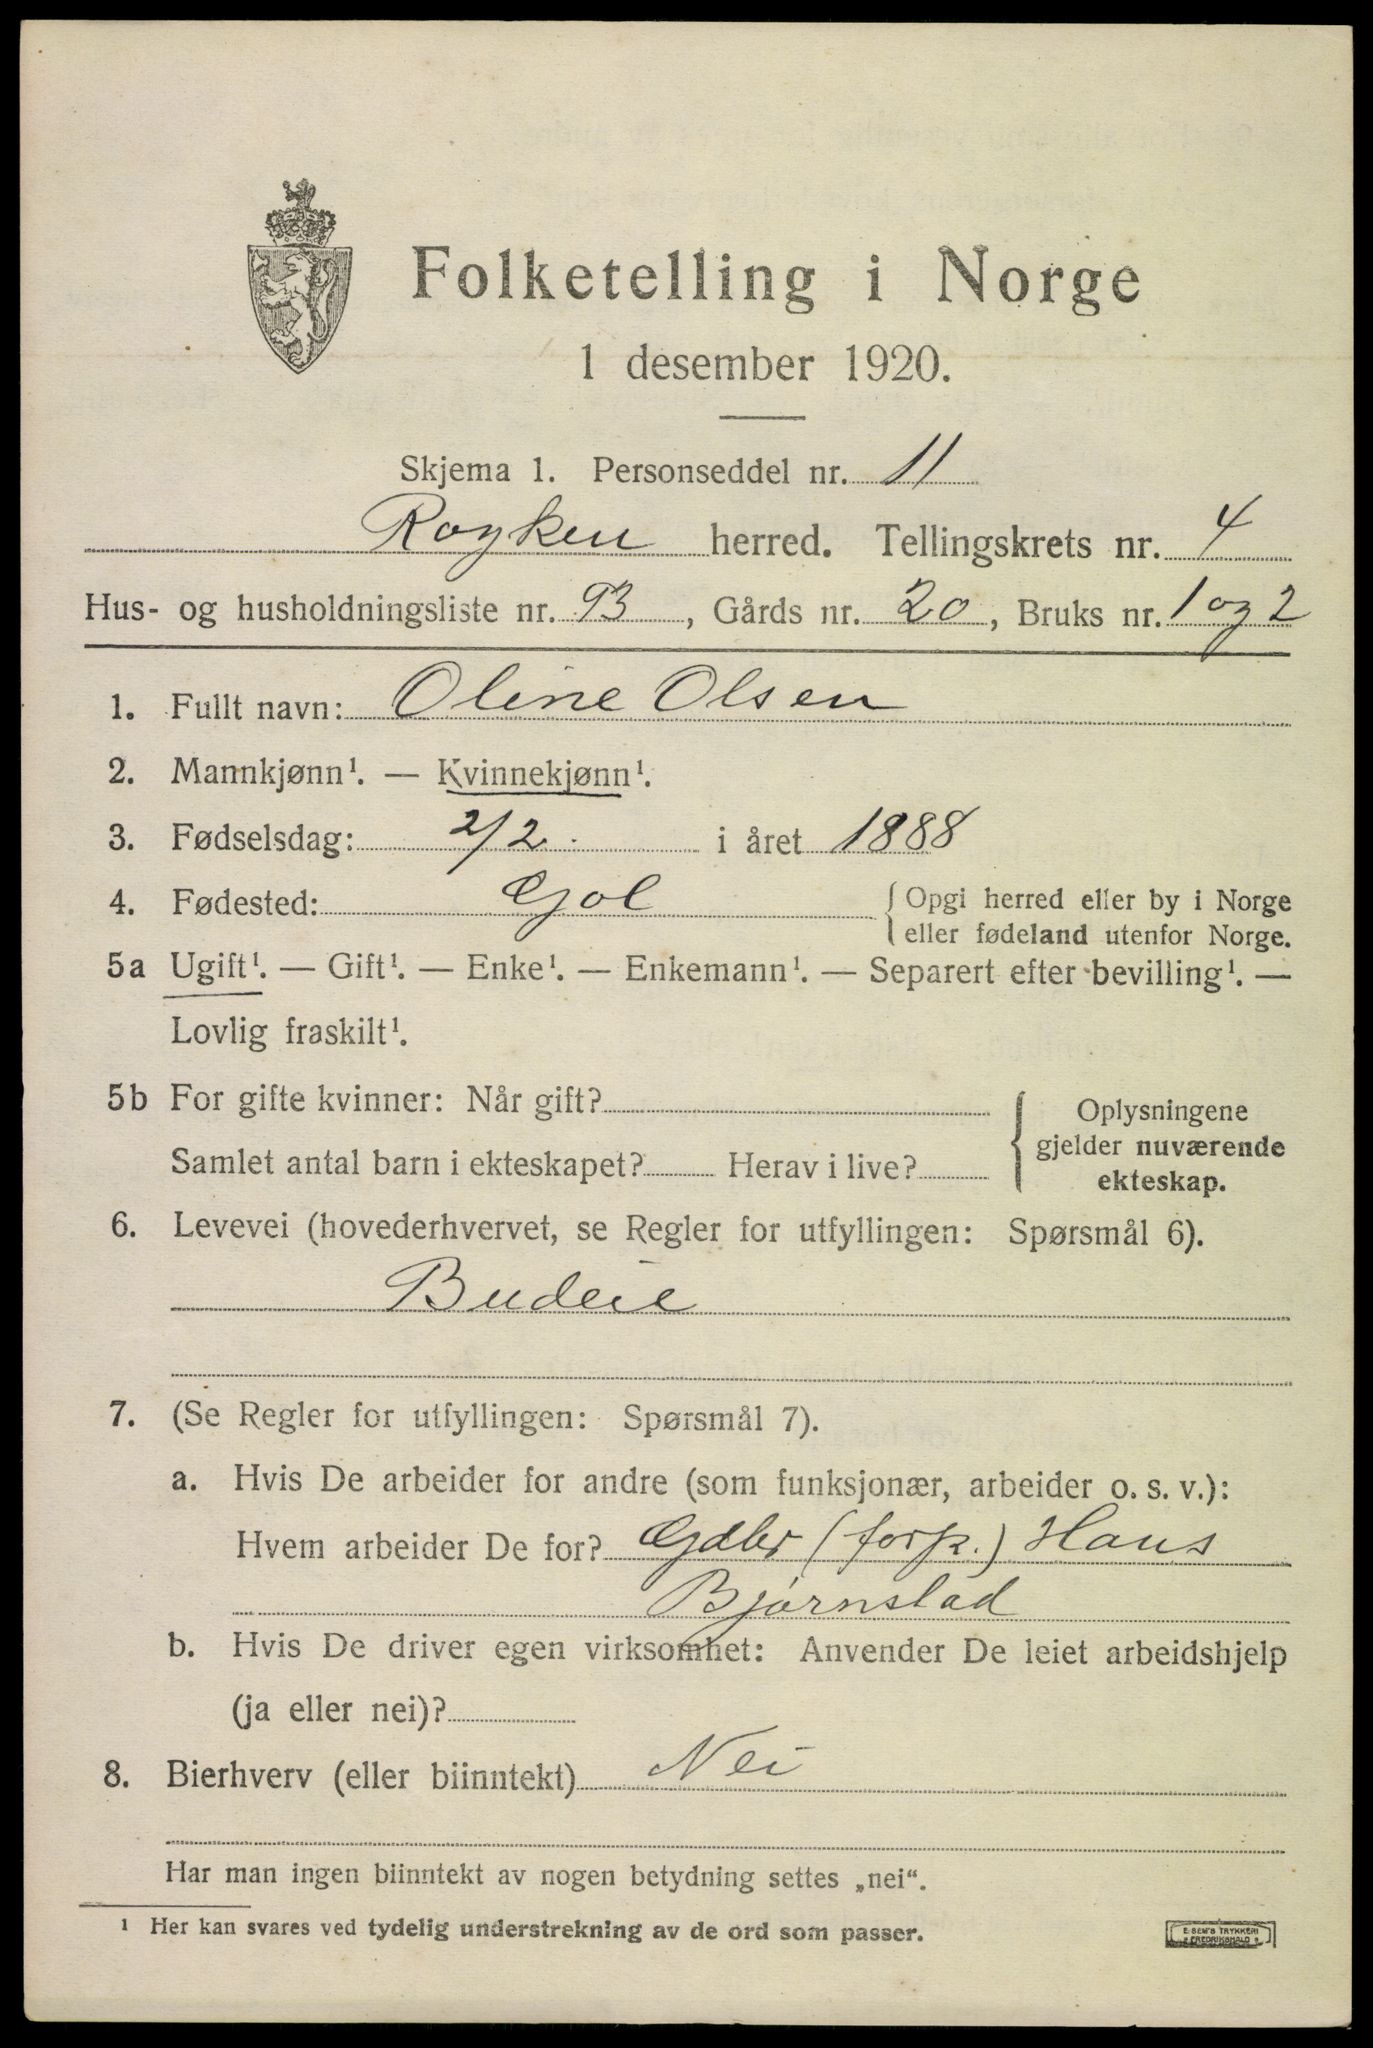 Folketelling i Norge
1 desember 1920.
Skjema 1. Personseddel nr. 11
Royken herred. Tellingskrets nr. 4
Hus- og husholdningsliste nr. 93, Gårds nr. 20, Bruks nr. 1 og 2
1. Fullt navn: Oline Olsen
2. Mannkjønn¹. — Kvinnekjønn¹.
3. Fødselsdag: 2/2. i året 1888
4. Fødested: Gol { Opgi herred eller by i Norge
eller fødeland utenfor Norge.
5a Ugift¹. — Gift¹. — Enke¹. — Enkemann¹. — Separert efter bevilling¹. —
Lovlig fraskilt¹.
5b For gifte kvinner: Når gift?
Samlet antal barn i ekteskapet? Herav i live?
Oplysningene
gjelder nuværende
ekteskap.
6. Levevei (hovederhvervet, se Regler for utfyllingen: Spørsmål 6).
Budeie
7. (Se Regler for utfyllingen: Spørsmål 7).
a. Hvis De arbeider for andre (som funksjonær, arbeider o. s. v.):
Hvem arbeider De for? Gdbr (forp.) Hans
Bjørnstad
b. Hvis De driver egen virksomhet: Anvender De leiet arbeidshjelp
(ja eller nei)?
8. Bierhverv (eller biinntekt) Nei
Har man ingen biinntekt av nogen betydning settes „nei“.
¹ Her kan svares ved tydelig understrekning av de ord som passer.
E. SEM'S TRYKKERI
FREDRIKSHALD